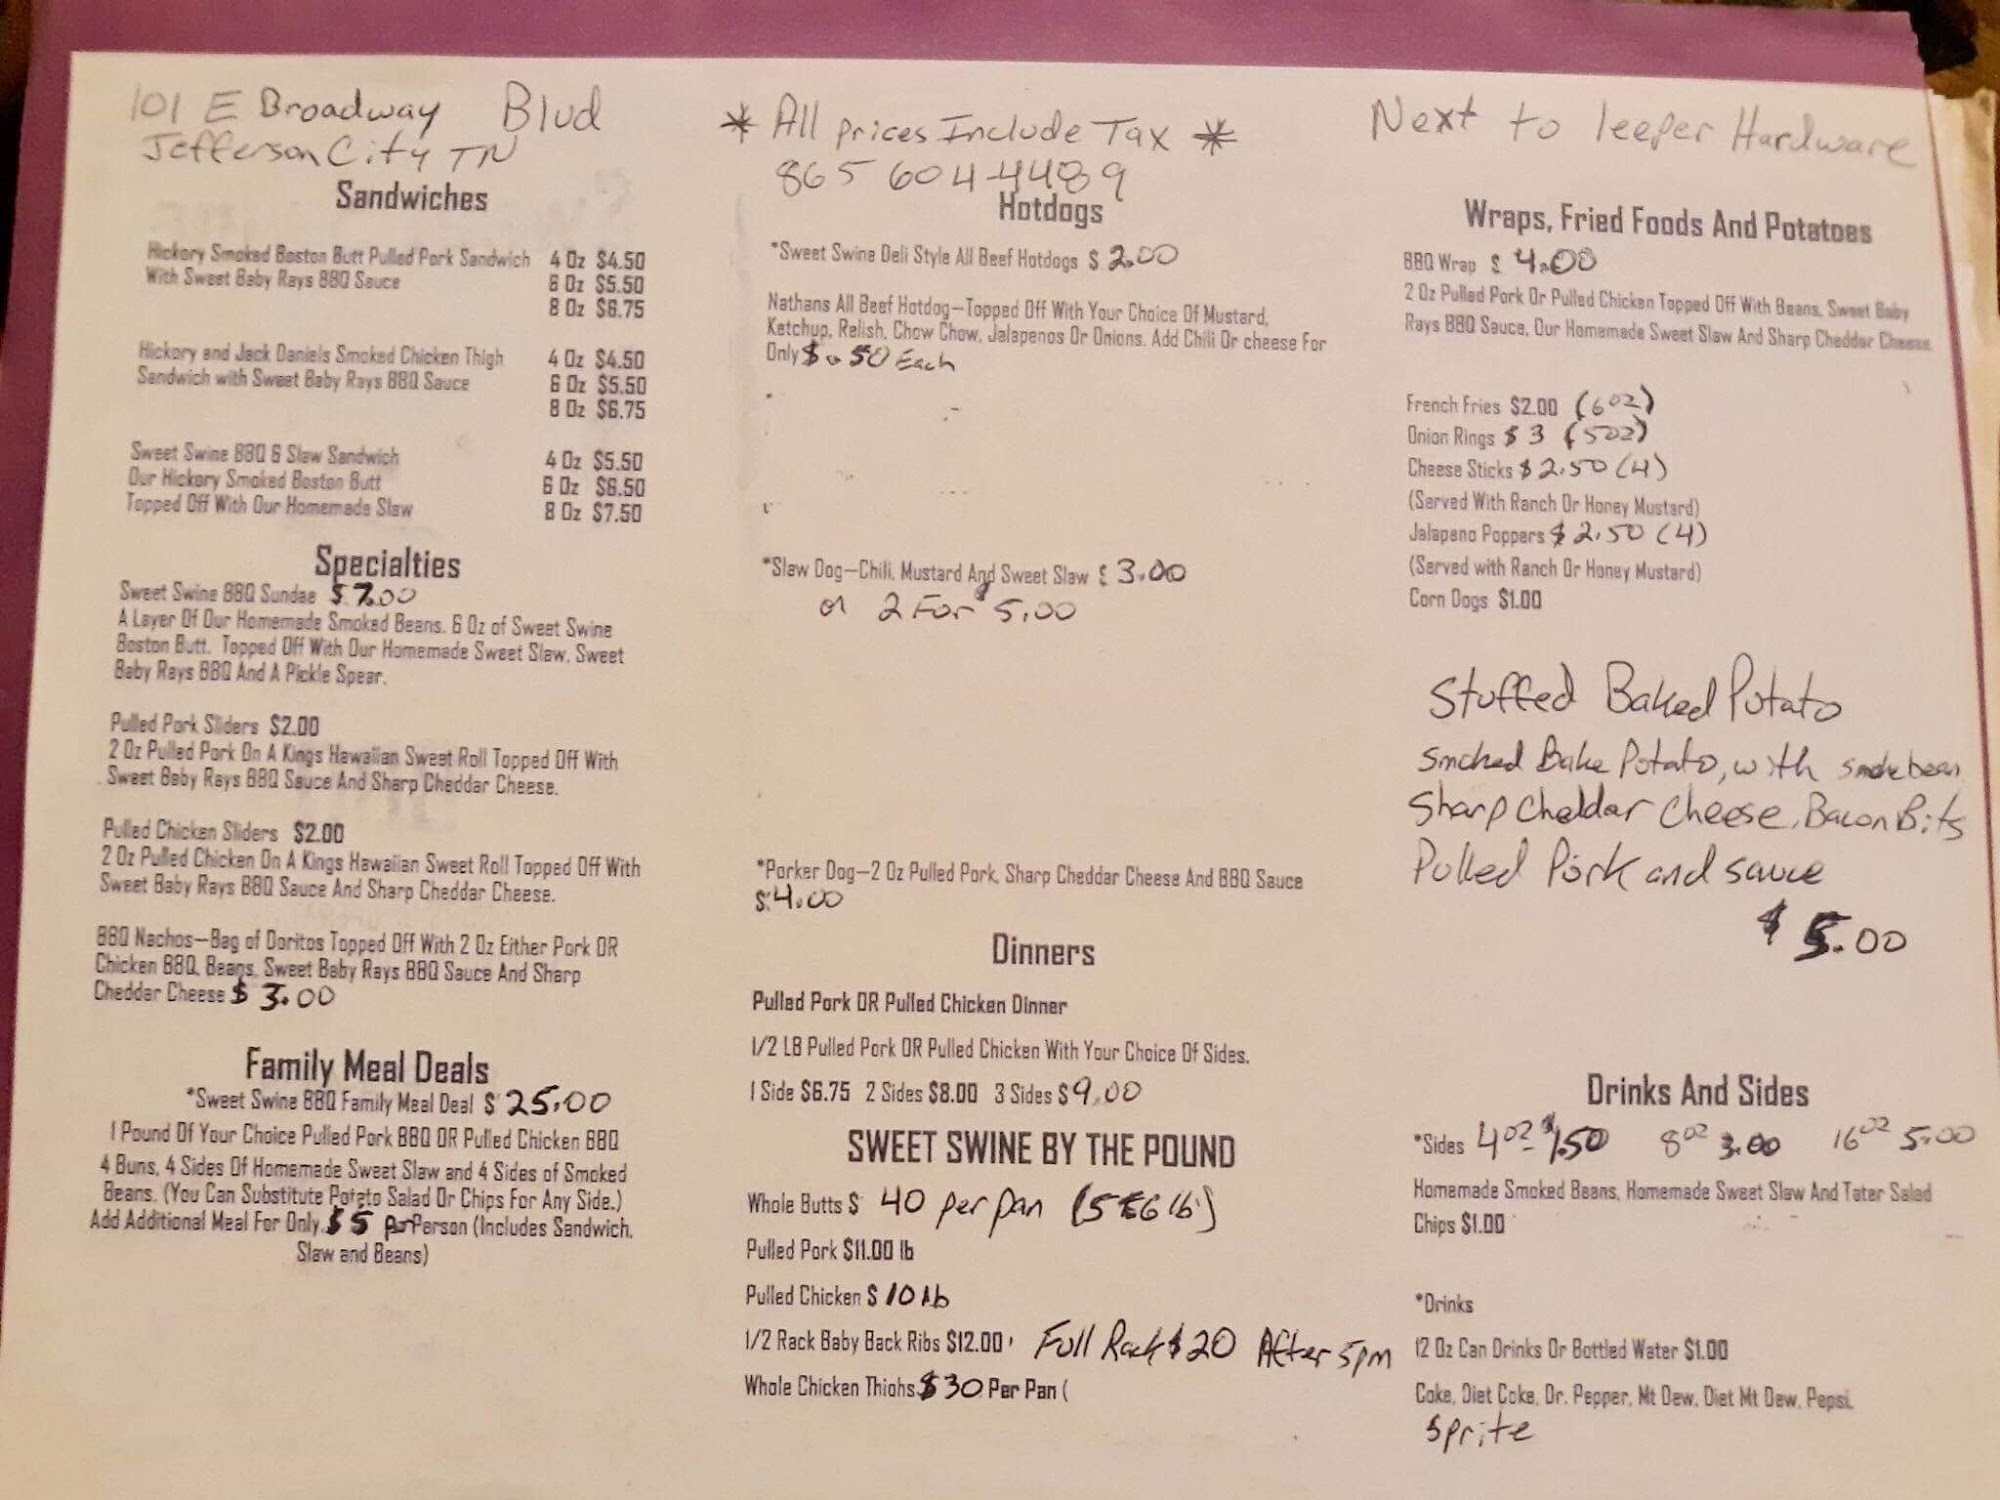 101 E Broadway Blvd
Jefferson City TN
Sandwiches
Hickory Smoked Boston Butt Pulled Pork Sandwich 4 Oz $4.50
With Sweet Baby Rays BBQ Sauce 6 Oz $5.50
8 Oz $6.75
Hickory and Jack Daniels Smoked Chicken Thigh 4 Oz $4.50
Sandwich with Sweet Baby Rays BBQ Sauce 6 Oz $5.50
8 Oz $6.75
Sweet Swine BBQ & Slaw Sandwich 4 Oz $5.50
Our Hickory Smoked Boston Butt 6 Oz $6.50
Topped Off With Our Homemade Slaw 8 Oz $7.50
Specialties
Sweet Swine BBQ Sundae $7.00
A Layer Of Our Homemade Smoked Beans. 6 Oz of Sweet Swine
Boston Butt. Topped Off With Our Homemade Sweet Slaw, Sweet
Baby Rays BBQ And A Pickle Spear.
Pulled Pork Sliders $2.00
2 Oz Pulled Pork On A Kings Hawaiian Sweet Roll Topped Off With
Sweet Baby Rays BBQ Sauce And Sharp Cheddar Cheese.
Pulled Chicken Sliders $2.00
2 Oz Pulled Chicken On A Kings Hawaiian Sweet Roll Topped Off With
Sweet Baby Rays BBQ Sauce And Sharp Cheddar Cheese.
BBQ Nachos—Bag of Doritos Topped Off With 2 Oz Either Pork OR
Chicken BBQ, Beans, Sweet Baby Rays BBQ Sauce And Sharp
Cheddar Cheese $3.00
Family Meal Deals
*Sweet Swine BBQ Family Meal Deal $25.00
1 Pound Of Your Choice Pulled Pork BBQ OR Pulled Chicken BBQ
4 Buns, 4 Sides Of Homemade Sweet Slaw and 4 Sides of Smoked
Beans. (You Can Substitute Potato Salad Or Chips For Any Side.)
Add Additional Meal For Only $5 per Person (Includes Sandwich,
Slaw and Beans)
* All prices Include Tax *
865 604-4489
Hotdogs
*Sweet Swine Deli Style All Beef Hotdogs $2.00
Nathans All Beef Hotdog—Topped Off With Your Choice Of Mustard,
Ketchup, Relish, Chow Chow, Jalapenos Or Onions. Add Chili Or cheese For
Only $.50 Each
*Slaw Dog—Chili, Mustard And Sweet Slaw $3.00
or 2 For $5.00
*Porker Dog—2 Oz Pulled Pork, Sharp Cheddar Cheese And BBQ Sauce
$4.00
Dinners
Pulled Pork OR Pulled Chicken Dinner
1/2 LB Pulled Pork OR Pulled Chicken With Your Choice Of Sides.
1 Side $6.75 2 Sides $8.00 3 Sides $9.00
SWEET SWINE BY THE POUND
Whole Butts $ 40 per pan (5 to 6 lb)
Pulled Pork $11.00 lb
Pulled Chicken $10 lb
1/2 Rack Baby Back Ribs $12.00 Full Rack $20 After 5pm
Whole Chicken Thighs $30 Per Pan (
Next to leeper Hardware
Wraps, Fried Foods And Potatoes
BBQ Wrap $ 4.00
2 Oz Pulled Pork Or Pulled Chicken Topped Off With Beans, Sweet Baby
Rays BBQ Sauce, Our Homemade Sweet Slaw And Sharp Cheddar Cheese.
French Fries $2.00 (6oz)
Onion Rings $3 (5oz)
Cheese Sticks $2.50 (4)
(Served With Ranch Or Honey Mustard)
Jalapeno Poppers $2.50 (4)
(Served with Ranch Or Honey Mustard)
Corn Dogs $1.00
Stuffed Baked Potato
Smoked Bake Potato, with smoke bean
Sharp Cheddar Cheese, Bacon Bits
Pulled Pork and sauce
$5.00
Drinks And Sides
*Sides 4oz $1.50 8oz 3.00 16oz 5.00
Homemade Smoked Beans, Homemade Sweet Slaw And Tater Salad
Chips $1.00
*Drinks
12 Oz Can Drinks Or Bottled Water $1.00
Coke, Diet Coke, Dr. Pepper, Mt Dew, Diet Mt Dew, Pepsi,
Sprite